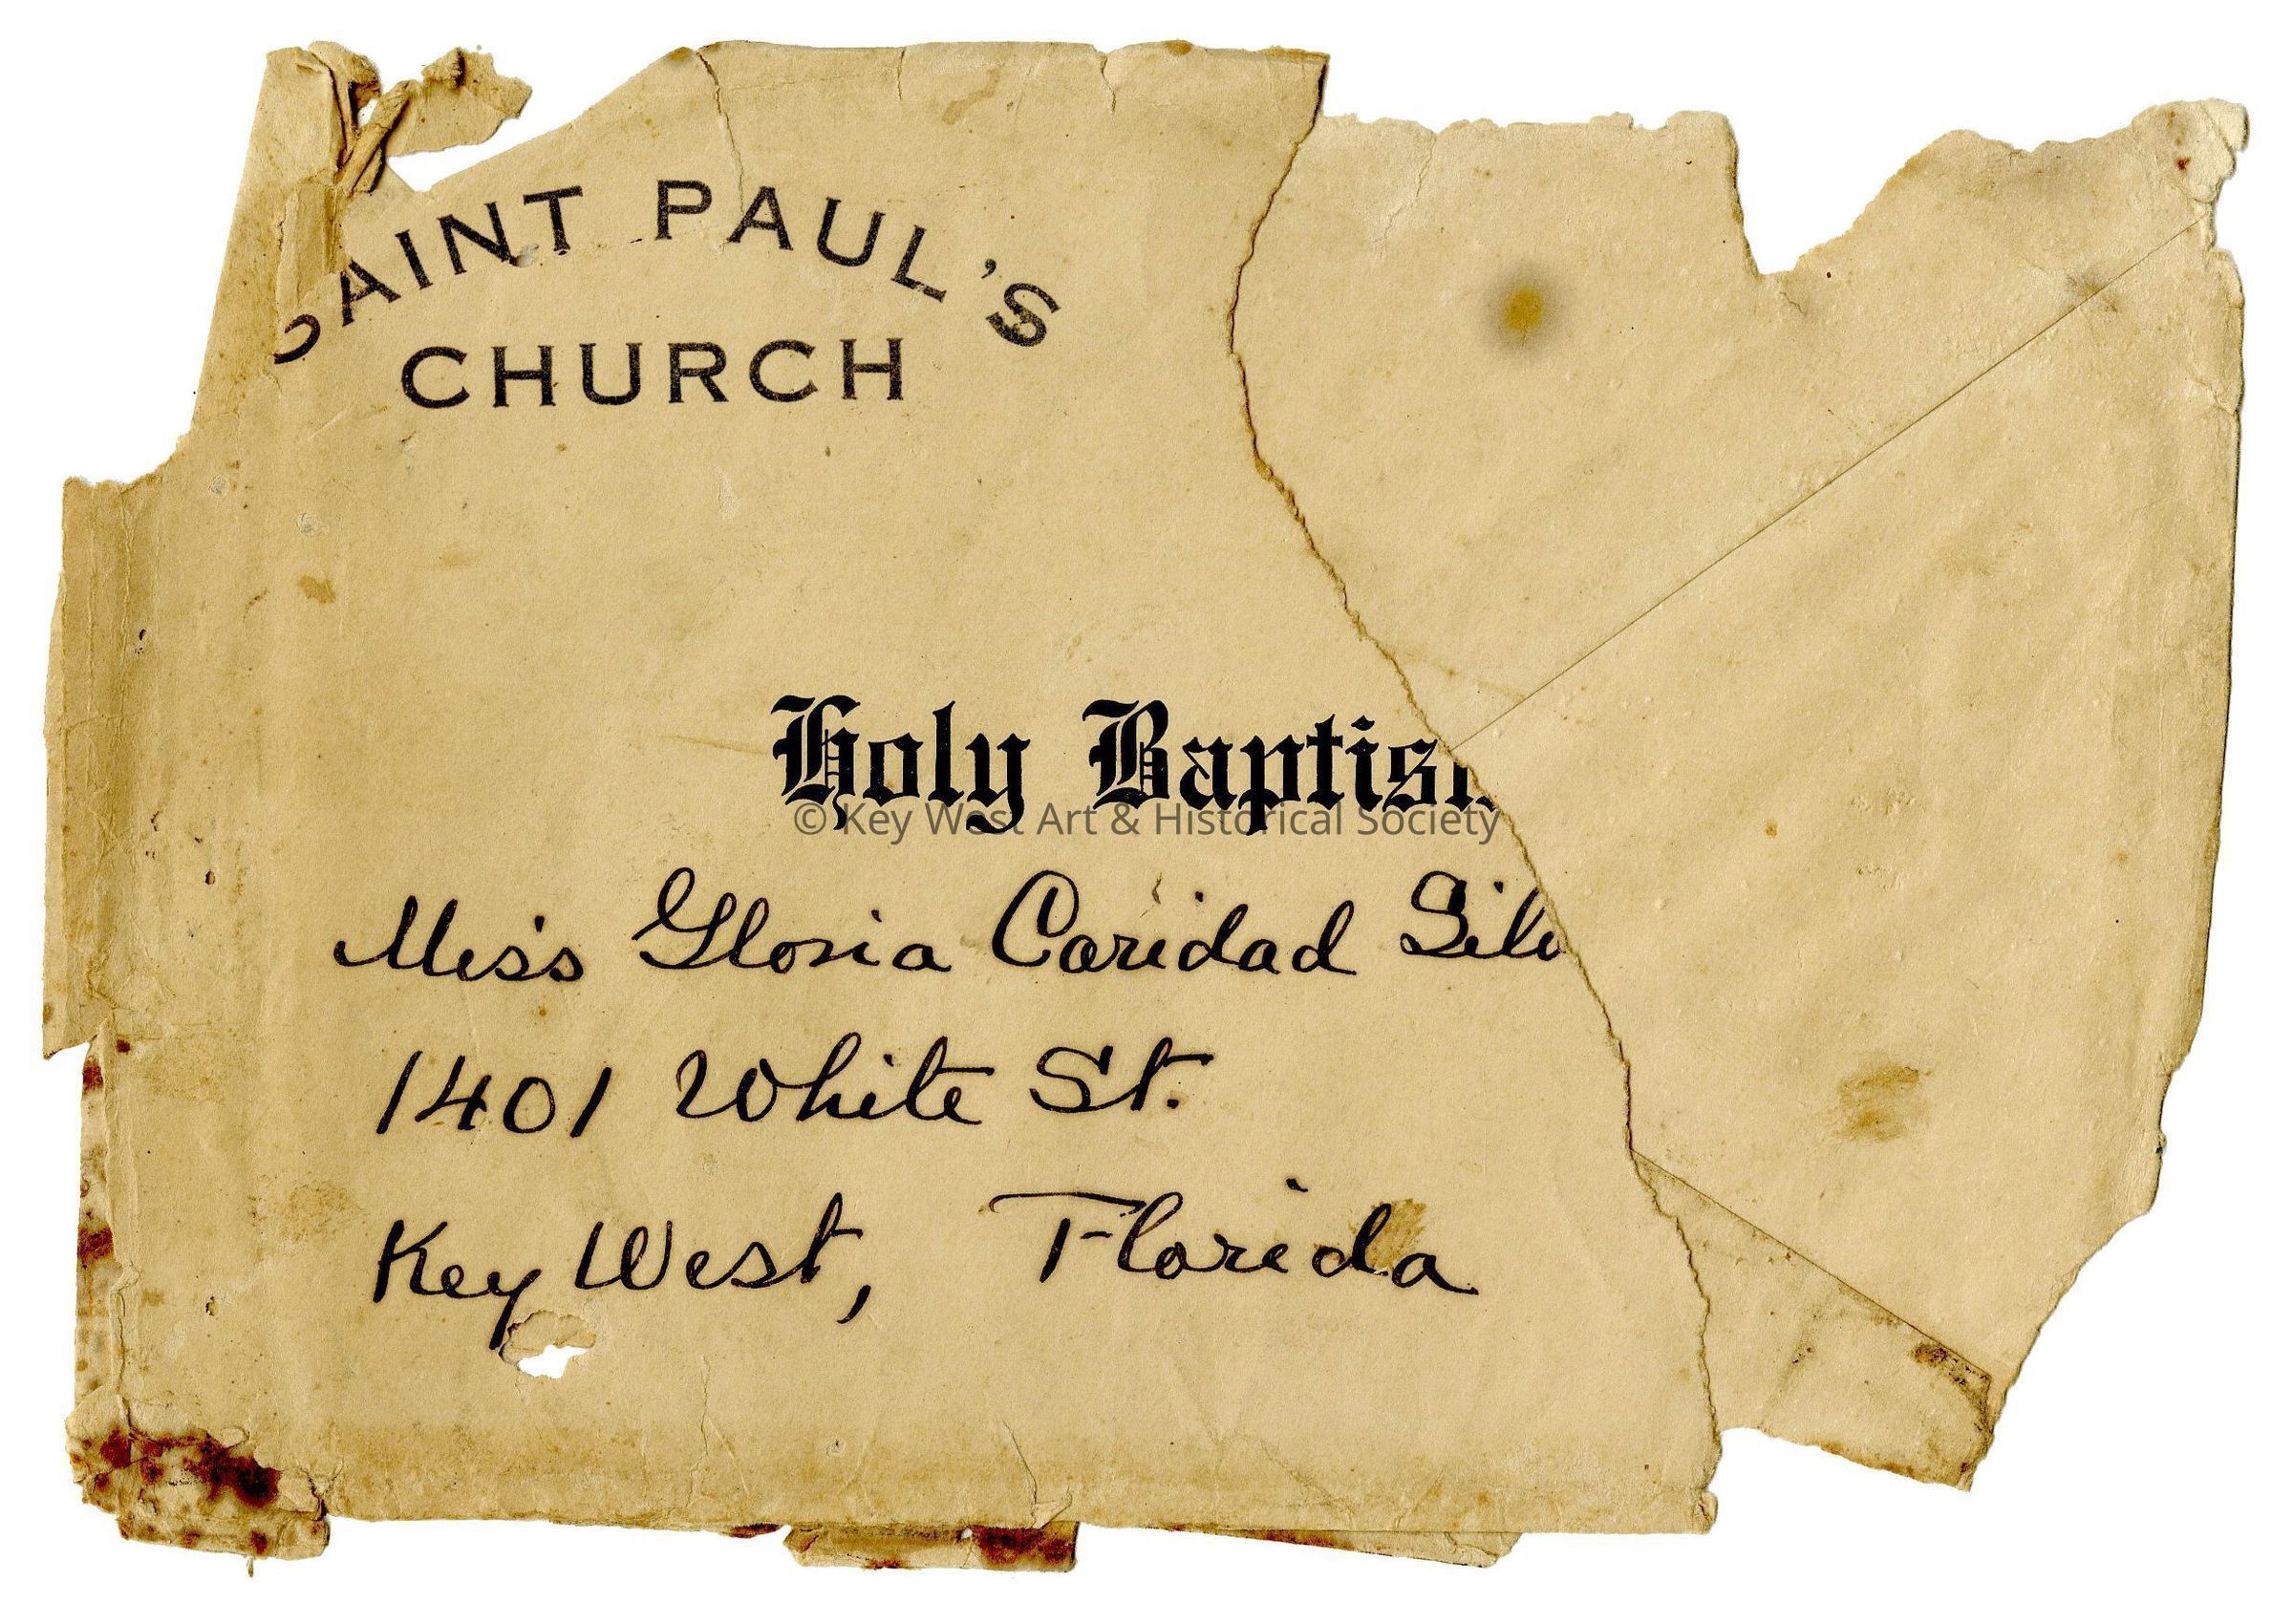 SAINT PAUL'S
CHURCH
Holy Baptis
© Key West Art & Historical Society
Miss Gloria Caridad
1401 White St.
Key West, Florida